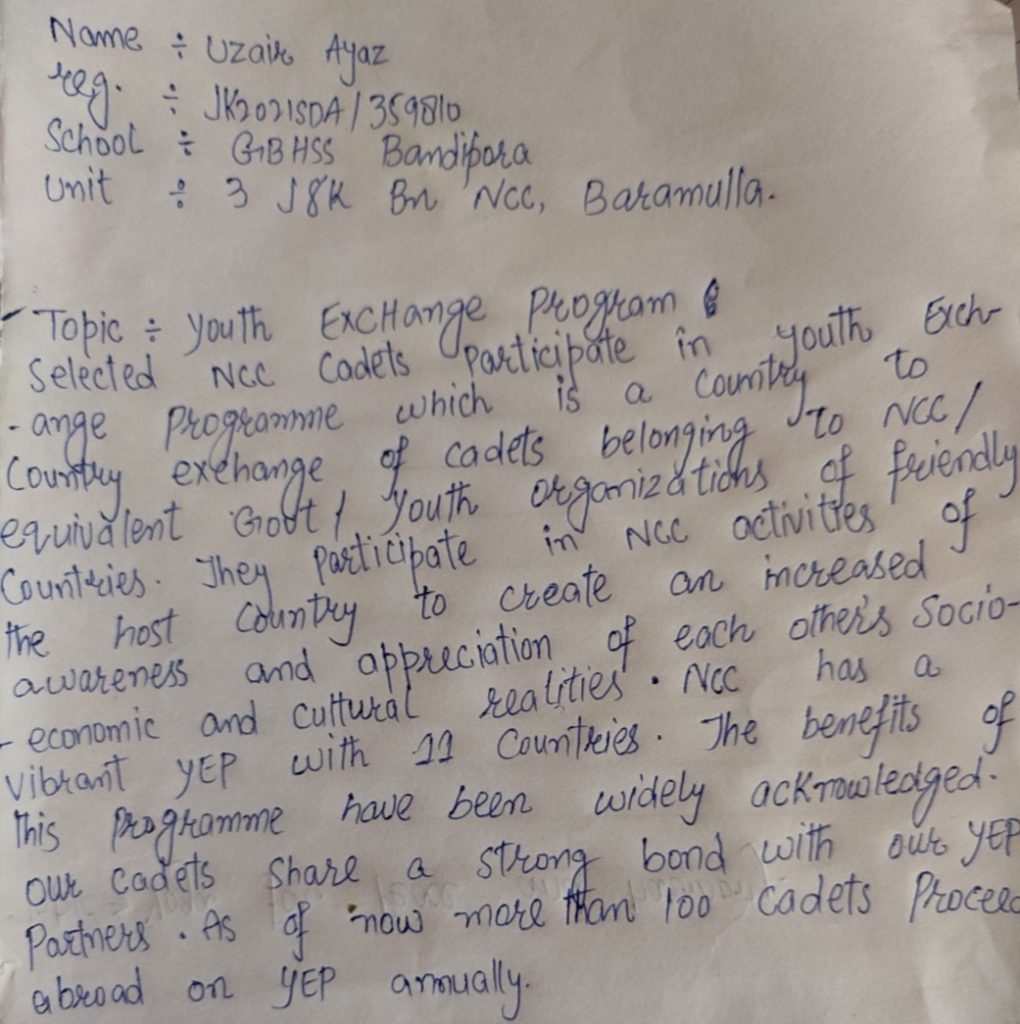 Name ÷ Uzair Ayaz
reg. ÷ JK2021SDA/359810
School ÷ GBHSS Bandipora
Unit ÷ 3 J&K Bn NCC, Baramulla.
Topic ÷ Youth ExCHange Program
Selected NCC Cadets Participate in youth Exch-
-ange Programme which is a Country to
Country exchange of cadets belonging to NCC/
equivalent Govt/ Youth organizations of friendly
Countries. They Participate in NCC activities of
the host Country to create an increased
awareness and appreciation of each other's Socio-
- economic and cultural realities. NCC has a
vibrant YEP with 11 Countries. The benefits of
This Programme have been widely acknowledged.
our Cadets Share a strong bond with our YEP
Partners. As of now more than 100 Cadets Proceed
abroad on YEP annually.